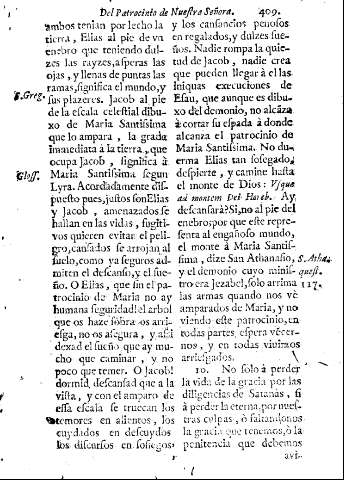 Del Patrocinio de Nuestra Señora. 409.
ambos tenian por lecho la
tierra, Elias al pie de vn
enebro que teniendo dul-
zes las rayzes, asperas las
ojas, y llenas de puntas las
ramas, significa el mundo, y
S. Greg.
sus plazeres. Jacob al pie
de la escala celestial dibu-
xo de Maria Santissima
que lo ampara, la grada
immediata à la tierra, que
ocupa Jacob, significa à
Gloss.
Maria Santissima segun
Lyra. Acordadamente dis-
puesto pues, justos son Elias
y Jacob, amenazados se
hallan en las vidas, fugiti-
vos quieren evitar el peli-
gro, cansados se arrojan al
suelo, como ya seguros ad-
miten el descanso, y el sue-
ño. O Elias, que sin el pa-
trocinio de Maria no ay
humana seguridad! el arbol
que os haze sombra os arri-
esga, no os asegura, y assi
dexad el sueño que ay mu-
cho que caminar, y no
poco que temer. O Jacob!
dormid, descansad que a la
vista, y con el amparo de
essa escala se truecan los
temores en alientos, los
cuydados en descuydos
los discursos en sosiegos
y los cansancios penosos
en regalados, y dulzes sue-
ños. Nadie rompa la quie-
tud de Jacob, nadie crea
que pueden llegar à el las
iniquas execuciones de
Esau, que aunque es dibu-
xo del demonio, no alcãza
à cortar su espada à donde
alcanza el patrocinio de
Maria Santissima. No du-
erma Elias tan sosegado,
despierte, y camine hasta
el monte de Dios: Vsque
ad montem Dei Horeb. Ay
descansarà? Si, no al pie del
enebro por que este repre-
senta al engañoso mundo,
el monte à Maria Santis-
sima, dize San Athanasio,
S. Atha.
y el demonio cuyo minis-
quest.
tro era Jezabel, solo arrima
127.
las armas quando nos vè
amparados de Maria, y no
viendo este patrocinio, en
todas partes, espera vècer-
nos, y en todas vivimos
arriesgados.
10. No solo à perder
la vida de la gracia por las
diligencias de Satanàs, si
à perder la eterna, por nues-
tras culpas, ò faltandonos
la gracia que tenemos, ò la
penitencia que debemos
avi-